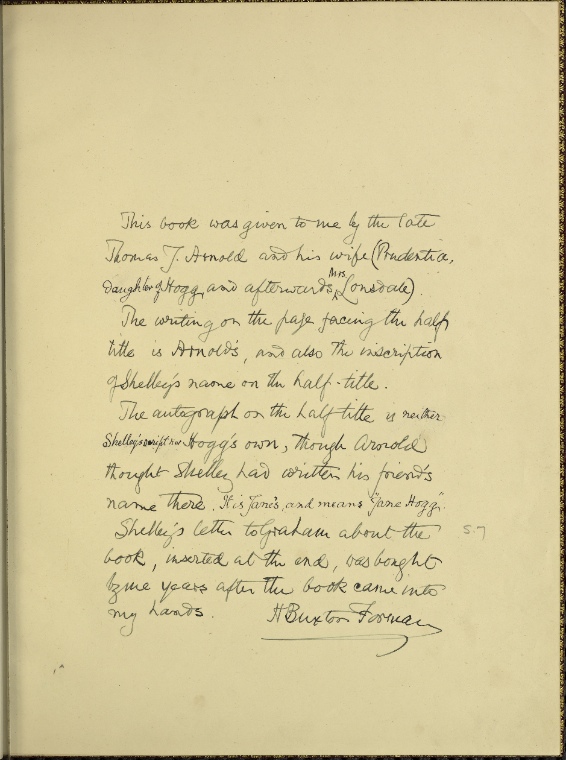 This book was given to me by the late
Thomas J. Arnold and his wife (Prudentia,
daughter of Hogg, and afterwards Mrs. Lonsdale).
The writing on the page facing the half
title is Arnold's, and also the inscription
of Shelley's name on the half-title.
The autograph on the half title is neither
Shelley's script nor Hogg's own, though Arnold
thought Shelley had written his friend's
name there. It is Jane's, and means "Jane Hogg".
Shelley's letter to Graham about the
book, inserted at the end, was bought
by me years after the book came into
my hands. H Buxton Forman
S.7